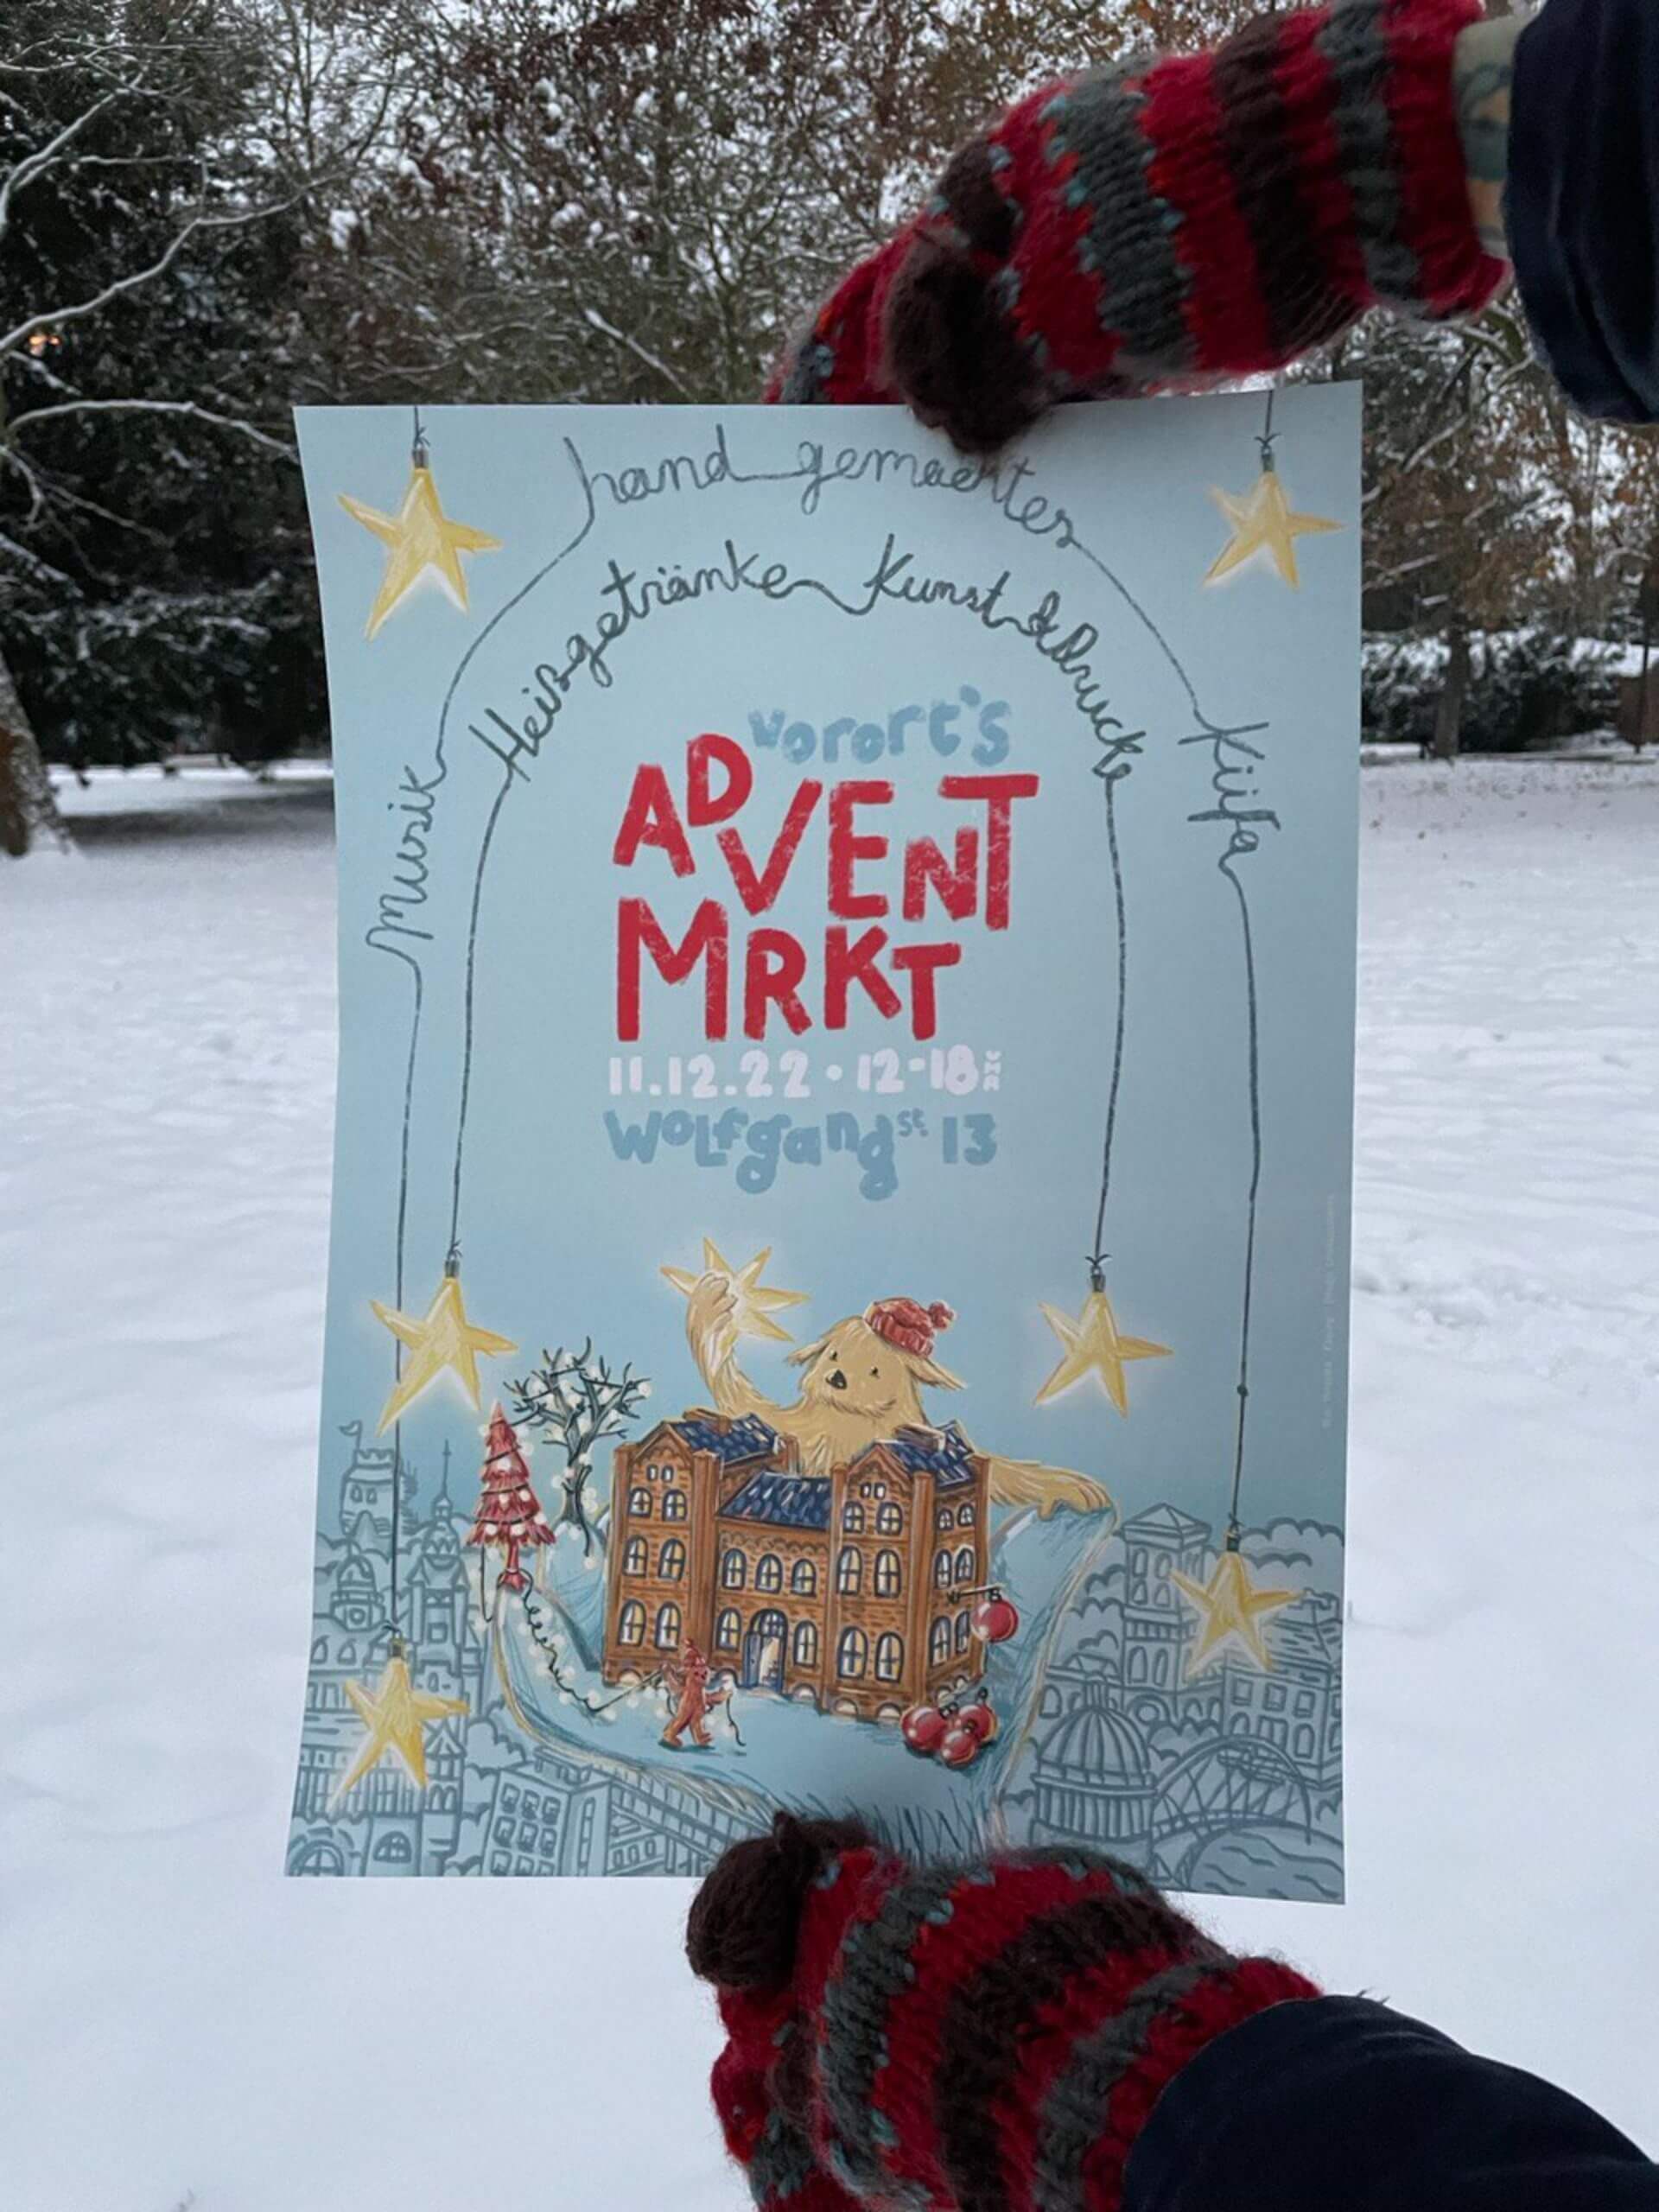 hand gemachtes
Musik
Heißgetränke Kunst & Drucke
Küfa
vorort's
ADVENT
MRKT
11.12.22 • 12-18
Wolfgangst 13